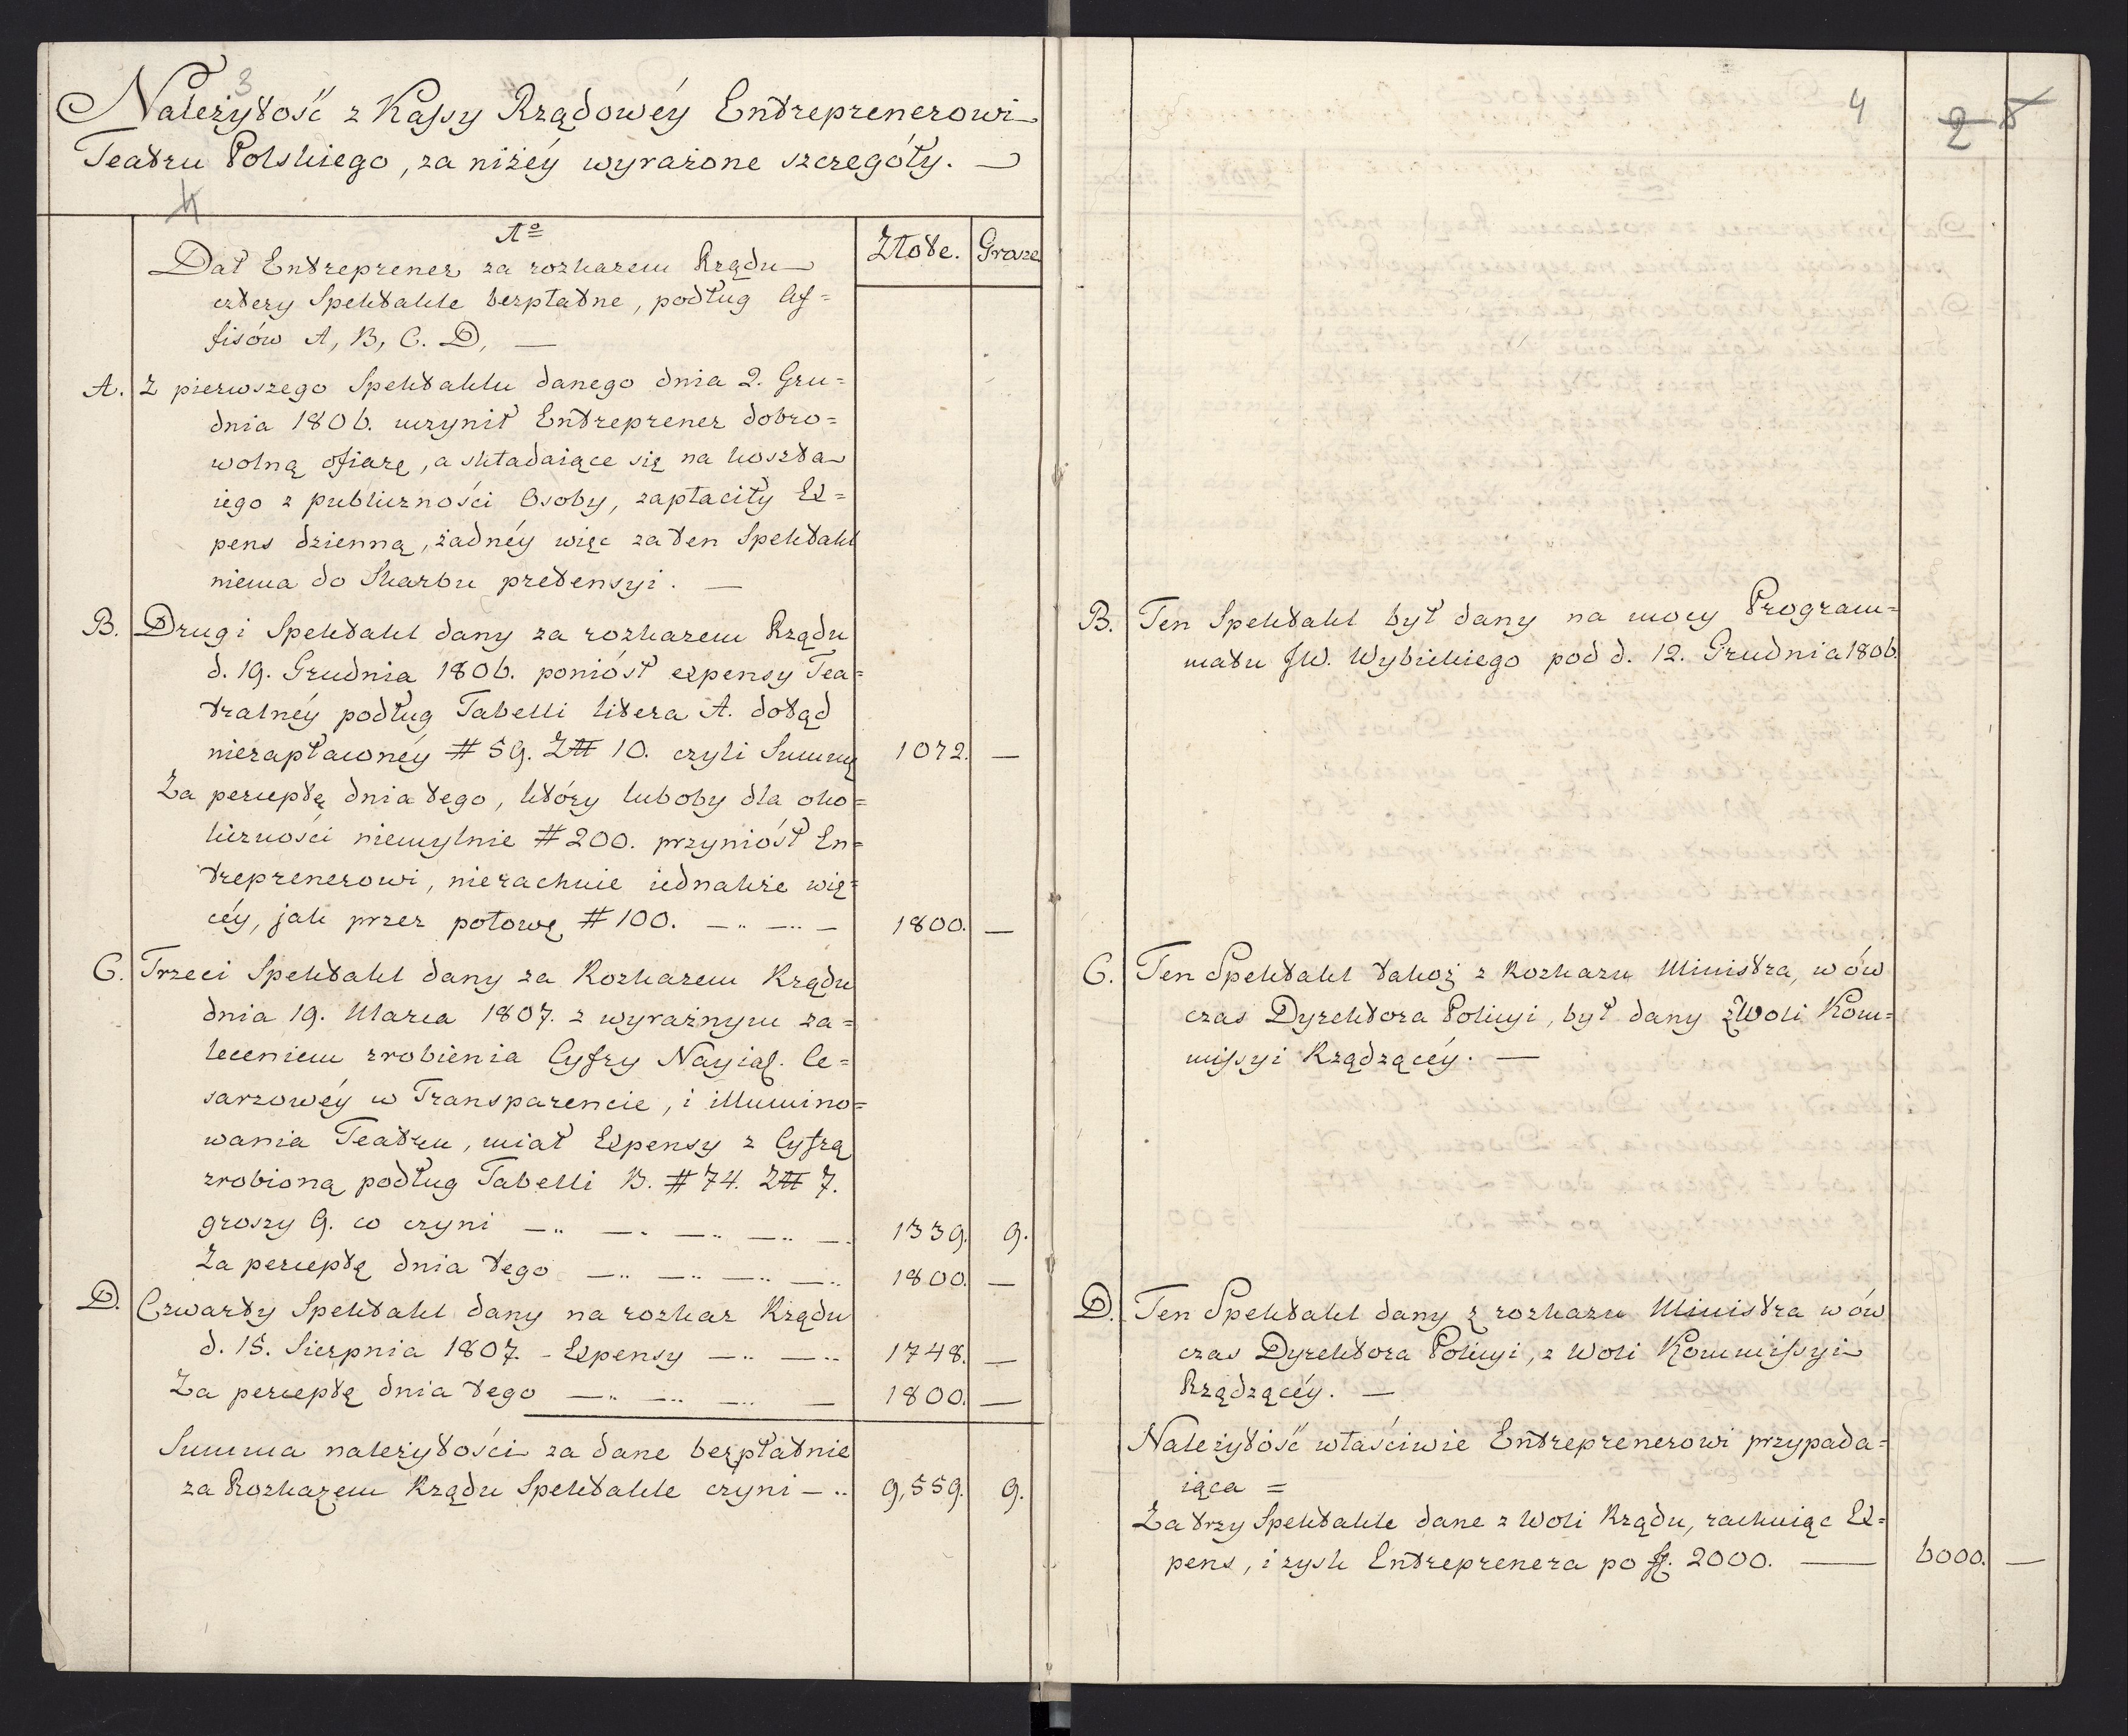 3
Należytość z Kassy Rządowéy Entreprenerowi
Teatru Polskiego, za niżéy wyrażone szczegóły. —
4
Aº
Złote. Grosze
Dał Entreprener za rozkazem Rządu
cztery Spektakle bezpłatne, podług Af=
fisów A, B, C. D, —
A. Z pierwszego Spektaklu danego dnia 2. Gru=
dnia 1806. uczynił Entreprener dobro=
wolną ofiarę, a składaiące się na koszta
iego z publiczności Osoby, zapłaciły Ex=
pens dzienną, żadnéy więc za ten Spektakl
niema do Skarbu pretensyi. —
B. Drugi Spektakl dany za rozkazem Rządu
d. 19. Grudnia 1806. poniósł expensy Tea=
tralnéy podług Tabelli litera A. dotąd
niezapłaconéy # 59. Zł 10. czyli Summę 1072. —
Za perceptę dnia tego, który luboby dla oko=
liczności niemylnie # 200. przyniósł En=
treprenerowi, nierachuie iednakże wię=
céy, jak przez połowę # 100. — .. — .. — 1800. —
C. Trzeci Spektakl dany za Rozkazem Rządu
dnia 19. Marca 1807. z wyraźnym za=
leceniem zrobienia Cyfry Nayiaś. Ce=
sarzowéy w Transparencie, i illumino=
wania Teatru, miał Expensy z Cyfrą
zrobioną podług Tabelli B. # 74. Zł 7.
groszy 9. co czyni — .. — . — .. — .. — . 1339. 9.
Za perceptę dnia tego — .. — .. — .. — .. 1800. —
D. Czwarty Spektakl dany na rozkaz Rządu
d. 15. Sierpnia 1807. - Expensy — .. — .. 1748. —
Za perceptę dnia tego — .. — .. — .. — 1800. —
Summa należytości za dane bezpłatnie
za Rozkazem Rządu Spektakle czyni — .. 9,559. 9.
4
2
B. Ten Spektakl był dany na mocy Program=
matu JW. Wybickiego pod d. 12. Grudnia 1806.
C. Ten Spektakl takoż z Rozkazu Ministra, w ów
czas Dyrektora Policyi, był dany z Woli Kom=
missyi Rządzącéy. —
D. Ten Spektakl dany z rozkazu Ministra w ów
czas Dyrektora Policyi, z Woli Kommissyi
Rządzącéy. —
Należytość właściwie Entreprenerowi przypada=
iąca =
Za trzy Spektakle dane z Woli Rządu, rachuiąc Ex=
pens, i zysk Entreprenera po fl. 2000. — 6000. —